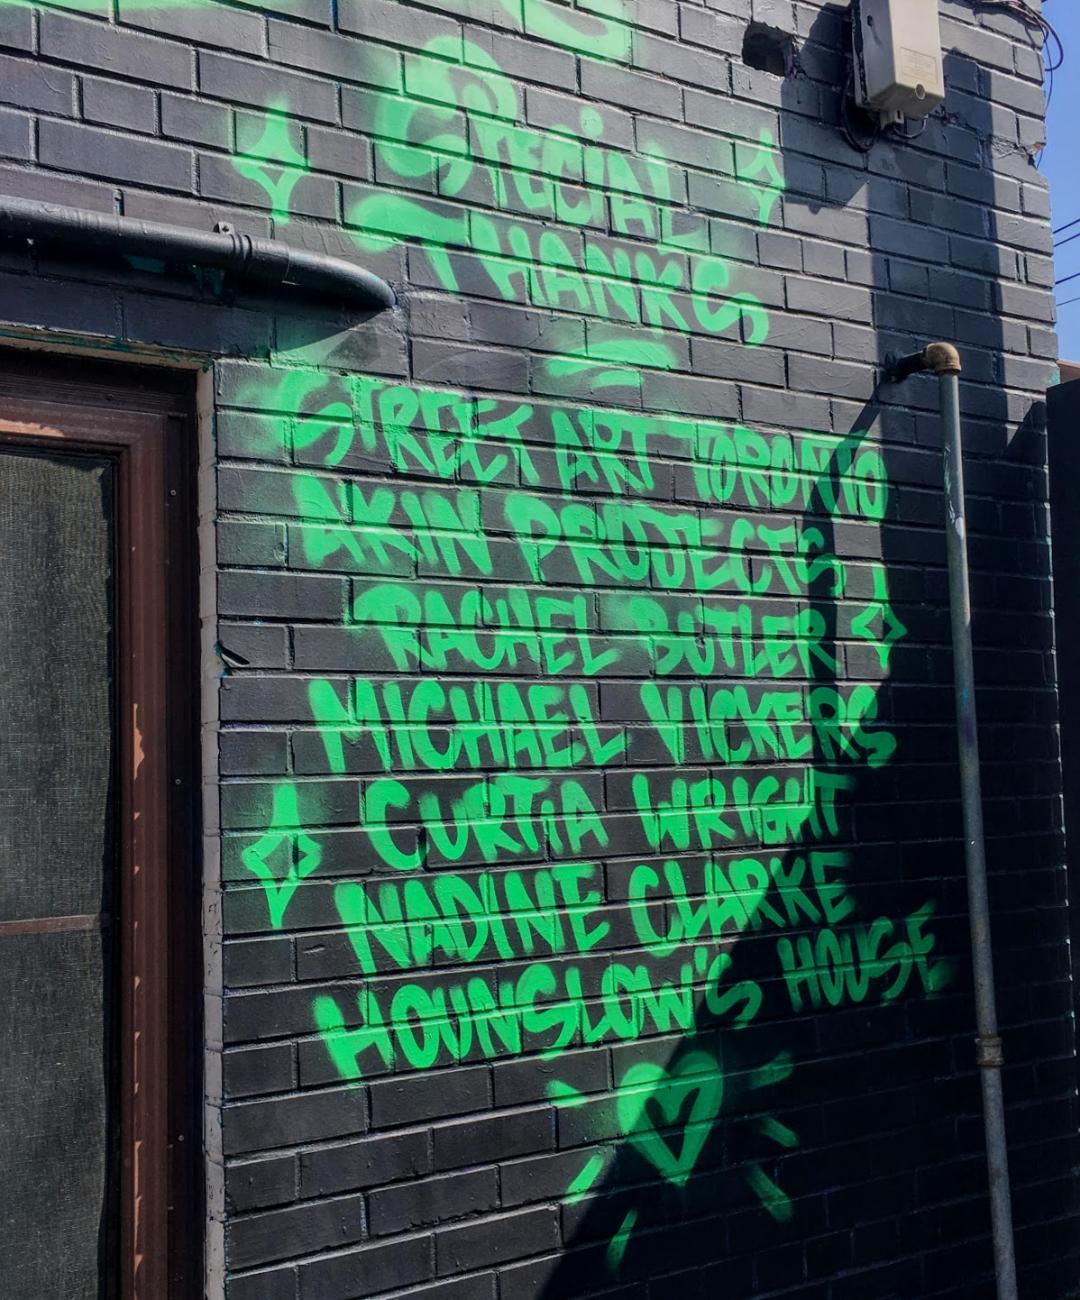 SPECIAL
THANKS
STREET ART TORONTO
AKIN PROJECTS
RACHEL BUTLER
MICHAEL VICKERS
CURTIA WRIGHT
NADINE CLARKE
HOUNSLOW'S HOUSE